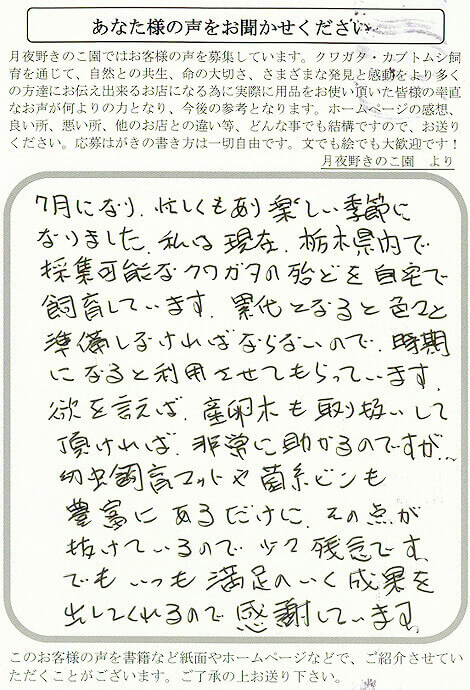 あなた様の声をお聞かせください
月夜野きのこ園ではお客様の声を募集しています。クワガタ・カブトムシ飼
育を通じて、自然との共生、命の大切さ、さまざまな発見と感動をより多く
の方達にお伝え出来るお店になる為に実際に用品をお使い頂いた皆様の率直
なお声が何よりの力となり、今後の参考となります。ホームページの感想、
良い所、悪い所、他のお店との違い等、どんな事でも結構ですので、お送り
ください。応募はがきの書き方は一切自由です。文でも絵でも大歓迎です！
月夜野きのこ園　より
7月になり、忙しくもあり楽しい季節に
なりました。私は現在、栃木県内で
採集可能なクワガタの殆どを自宅で
飼育しています。累代となると色々と
準備しなければならないので、時期
になると利用させてもらっています。
欲を言えば、産卵木も取り扱いして
頂ければ、非常に助かるのですが…
幼虫飼育マットや菌糸ビンも
豊富にあるだけに、その点が
抜けているので少々残念です。
でもいつも満足のいく成果を
出してくれるので感謝しています。
このお客様の声を書籍など紙面やホームページなどで、ご紹介させてい
ただくことがございます。ご了承の上お送り下さい。